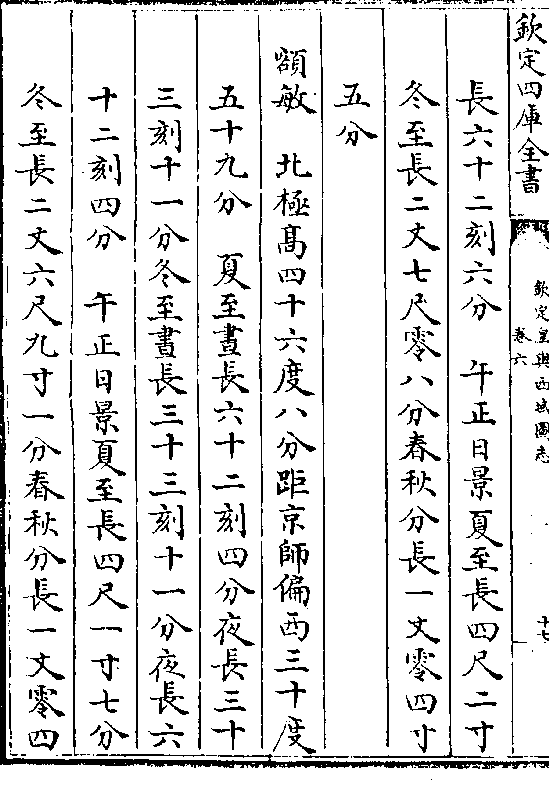 欽定四庫全書
欽定皇輿西域圖志
卷六
十七
長六十二刻六分　午正日景夏至長四尺二寸
冬至長二丈七尺零八分春秋分長一丈零四寸
五分
額敏　北極高四十六度八分距京師偏西三十度
五十九分　夏至晝長六十二刻四分夜長三十
三刻十一分冬至晝長三十三刻十一分夜長六
十二刻四分　午正日景夏至長四尺一寸七分
冬至長二丈六尺九寸一分春秋分長一丈零四